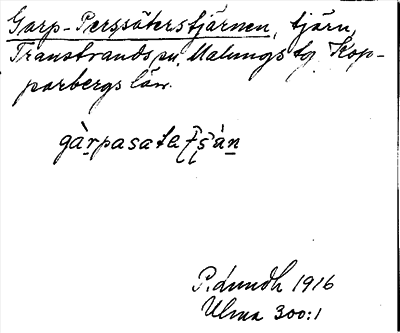 Garp-Perssäterstjärnen, tjärn,
Transtrands sn. Malungs tg Kop-
parbergs län.
gàrpasatat̯ʂàn
P. Lundh 1916
Ulma 300:1